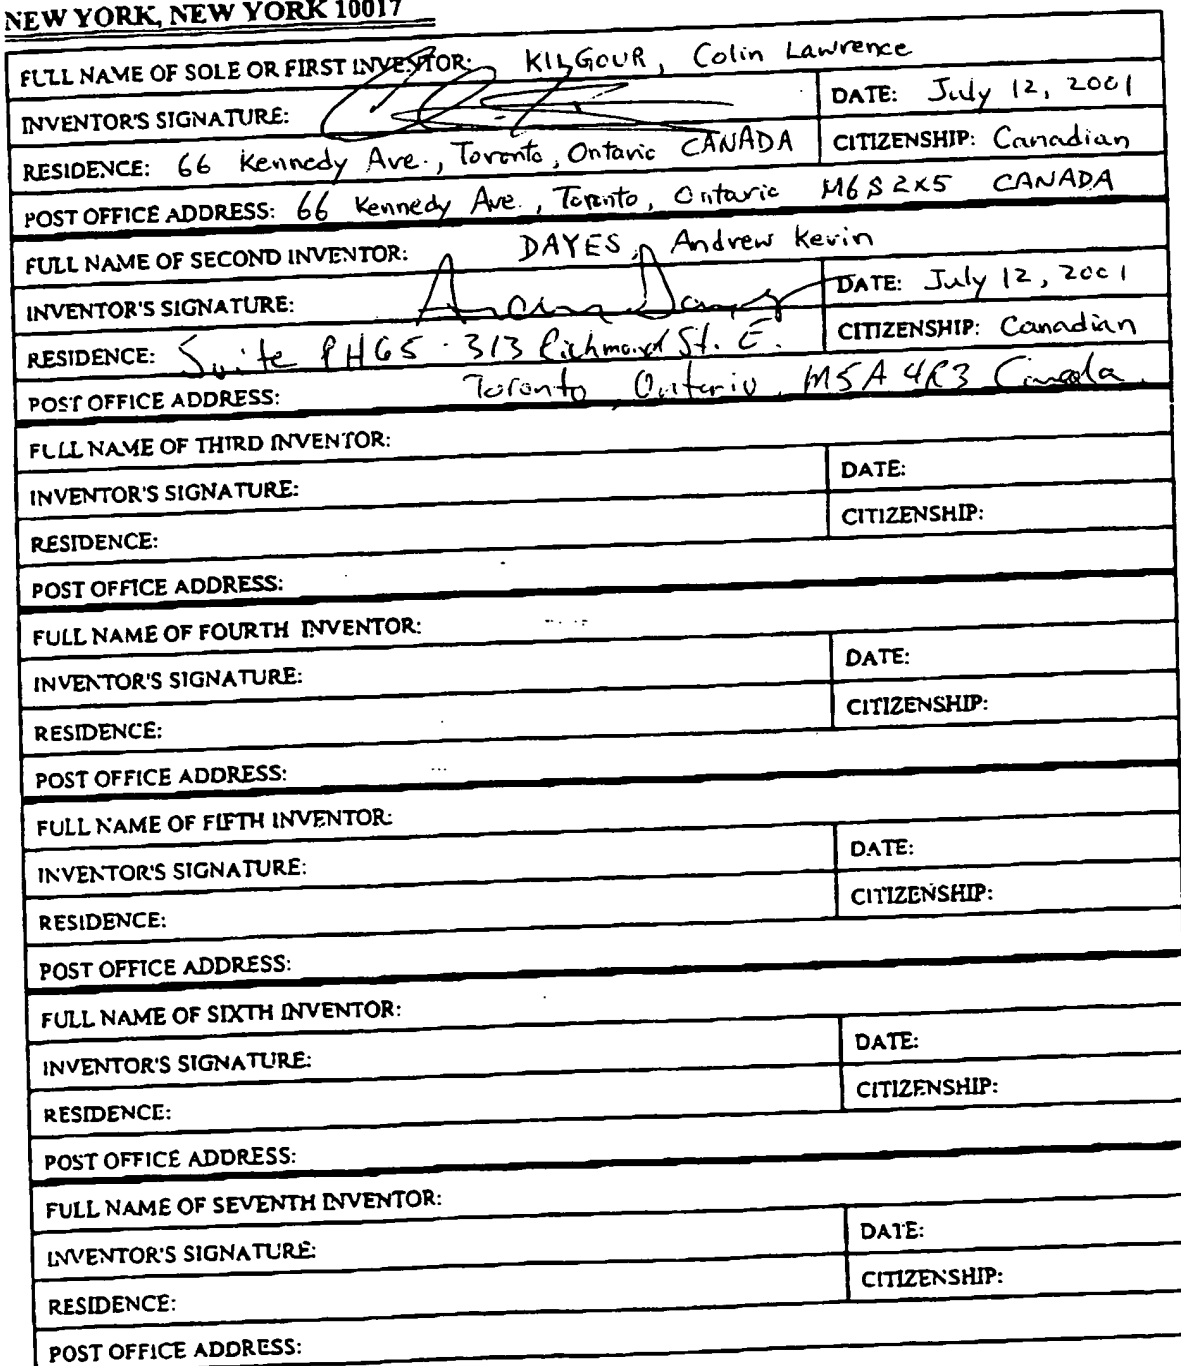 NEW YORK, NEW YORK 10017
FULL NAME OF SOLE OR FIRST INVENTOR: KILGOUR, Colin Lawrence
INVENTOR'S SIGNATURE:
DATE: July 12, 2001
RESIDENCE: 66 Kennedy Ave., Toronto, Ontario CANADA
CITIZENSHIP: Canadian
POST OFFICE ADDRESS: 66 Kennedy Ave., Toronto, Ontario M6S 2X5 CANADA
FULL NAME OF SECOND INVENTOR: DAYES, Andrew Kevin
INVENTOR'S SIGNATURE:
DATE: July 12, 2001
RESIDENCE: Suite PH65 - 313 Richmond St. E.
CITIZENSHIP: Canadian
POST OFFICE ADDRESS: Toronto, Ontario, M5A 4R3 Canada.
FULL NAME OF THIRD INVENTOR:
INVENTOR'S SIGNATURE:
DATE:
RESIDENCE:
CITIZENSHIP:
POST OFFICE ADDRESS:
FULL NAME OF FOURTH INVENTOR:
INVENTOR'S SIGNATURE:
DATE:
RESIDENCE:
CITIZENSHIP:
POST OFFICE ADDRESS:
FULL NAME OF FIFTH INVENTOR:
INVENTOR'S SIGNATURE:
DATE:
RESIDENCE:
CITIZENSHIP:
POST OFFICE ADDRESS:
FULL NAME OF SIXTH INVENTOR:
INVENTOR'S SIGNATURE:
DATE:
RESIDENCE:
CITIZENSHIP:
POST OFFICE ADDRESS:
FULL NAME OF SEVENTH INVENTOR:
INVENTOR'S SIGNATURE:
DATE:
RESIDENCE:
CITIZENSHIP:
POST OFFICE ADDRESS: